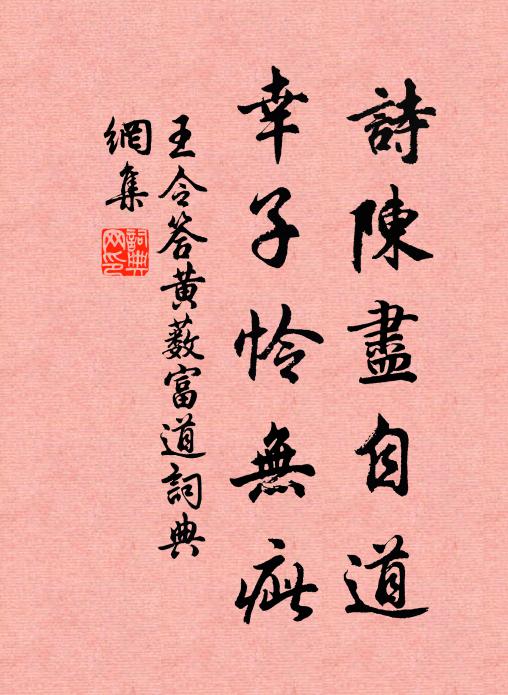 詩陳盡自道
幸子怜無疵
王令答黄薮富道詞典
網集
詞典
网印